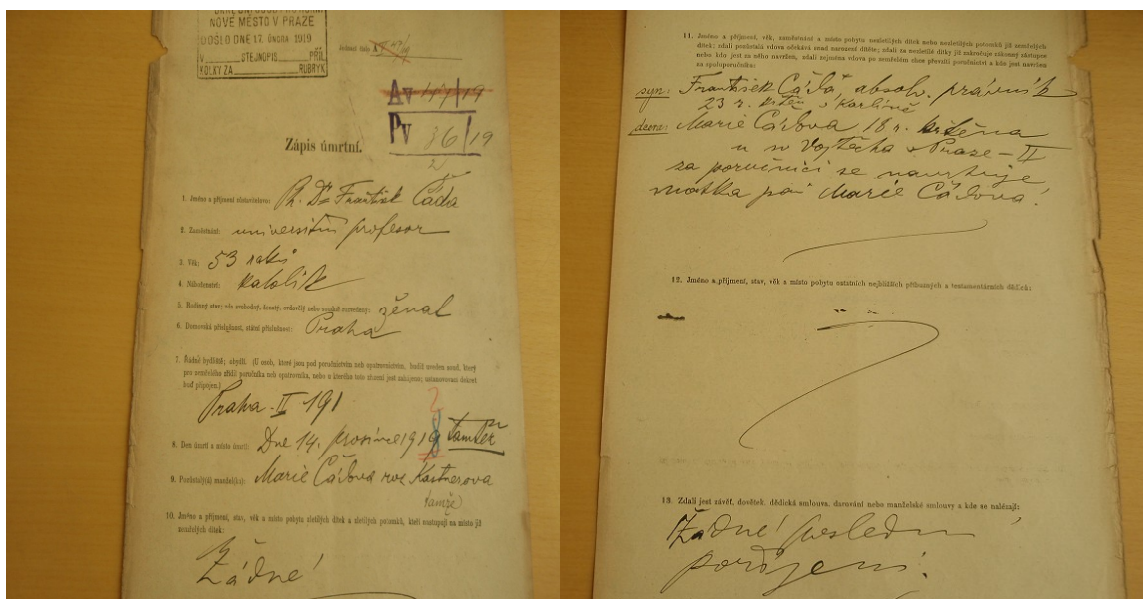 NOVÉ MĚSTO V PRAZE
DOŠLO DNE 17. ÚNORA 1919
V STEJNOPIS PŘÍL.
KOLKY ZA RUBRYK
Jednací číslo A
Av 147/19
Pv 36/19
2
Zápis úmrtní.
1. Jméno a příjmení zůstavitelovo: Ph. Dr František Čáda
2. Zaměstnání: universitní profesor
3. Věk: 53 roků
4. Náboženství: katolík
5. Rodinný stav; zda svobodný, ženatý, ovdovělý nebo soudně rozvedený: ženat
6. Domovská příslušnost, státní příslušnost: Praha
7. Řádné bydliště; obydlí. (U osob, které jsou pod poručnictvím neb opatrovnictvím, budiž uveden soud, který
pro zemřelého zřídil poručníka neb opatrovníka, nebo u kterého toto zřízení jest zahájeno; ustanovovací dekret
buď připojen.)
Praha-II 191
2
8. Den úmrtí a místo úmrtí: Dne 14. prosince 1918 tamtéž
9. Pozůstalý(á) manžel(ka): Marie Čádova roz. Kastnerova
tamže
10. Jméno a příjmení, stav, věk a místo pobytu zletilých dítek a zletilých potomků, kteří nastupují na místo již
zemřelých dítek:
Žádné!
11. Jméno a příjmení, věk, zaměstnání a místo pobytu nezletilých dítek nebo nezletilých potomků již zemřelých
dítek; zdali pozůstalá vdova očekává snad narození dítěte; zdali za nezletilé dítky již zakročuje zákonný zástupce
nebo kdo jest za něho navržen, zdali zejména vdova po zemřelém chce převzíti poručnictví a kdo jest navržen
za spoluporučníka:
syn: František Čáda, absolv. právník
23 r. křtěn v Karlíně
dcera: Marie Čádova 18 r. křtěna
u sv Vojtěcha v Praze-II
za poručnici se navrhuje
matka paní Marie Čádova!
12. Jméno a příjmení, stav, věk a místo pobytu ostatních nejbližších příbuzných a testamentárních dědiců:
13. Zdali jest závěť, dovětek, dědická smlouva, darování nebo manželské smlouvy a kde se nalézají:
Žádné poslední
pořízení.